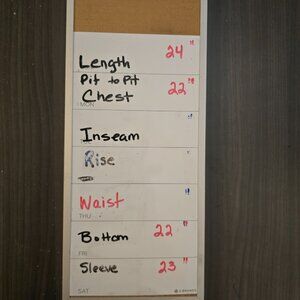 Length 24"
Pit to Pit
Chest 22"
MON
Inseam "
Rise '
Waist "
THU
Bottom 22"
FRI
Sleeve 23"
SAT